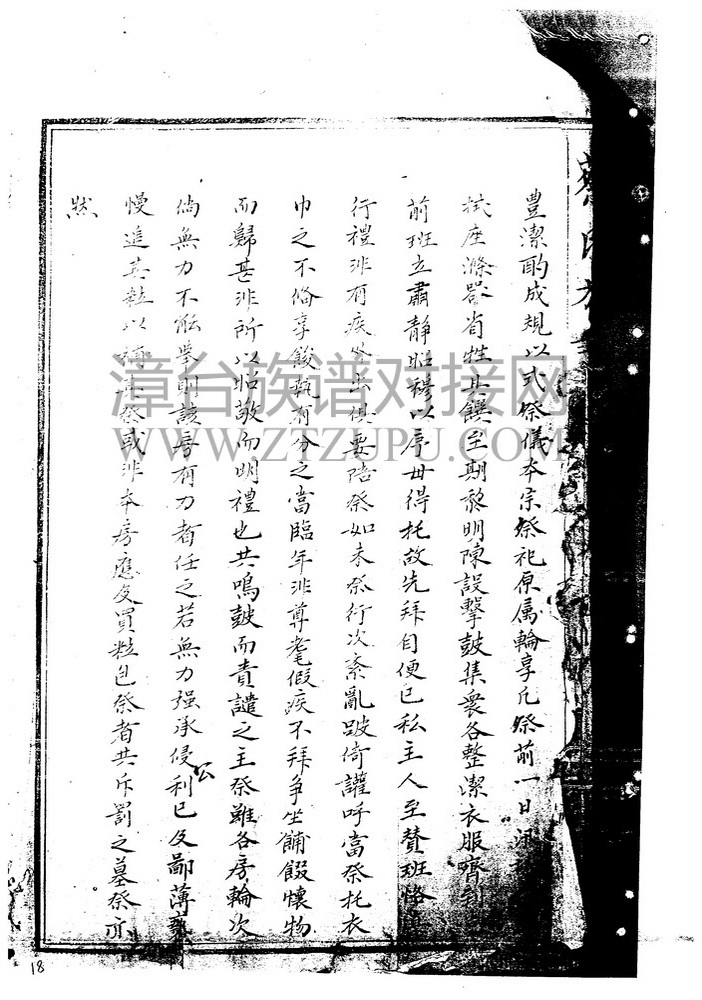 豊潔酌成規以式祭儀本宗祭祀原属輪享凡祭前一日
拭座滌器省牲具饌至期黎明陳設擊鼓集衆各整潔衣服齊到
前班立肅静昭穆以序毋得托故先拜自便已私主人至賛班恪
行禮非有疾 出俱要陪祭如未祭行次紊亂跛倚讙呼當祭托衣
巾之不脩享餕 有分之當臨年非尊耄假疾不拜争坐餔餟懷物
而歸甚非所以昭敬而明禮也共鳴鼓而責譴之主祭雖各房輪次
倘無力不能舉則該房有力者任之若無力强承侵公利已及鄙薄褻
慢追其粒以 其祭或非本房應及買粒包祭者共斥罰之墓祭亦
然
漳台族谱对接网
WWW.ZTZUPU.COM
18